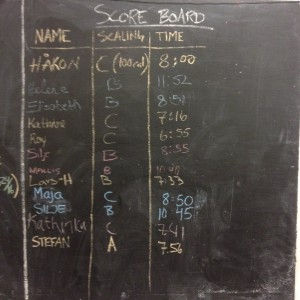 SCORE BOARD
NAME SCALING TIME
HÅKON C (100rd) 8:00
Helene B 11:52
Elisabeth B 8:51
Katrine C 7:16
Roy C 6:55
Silje B 8:55
B
B 7:33
Maja C 8:50
SILJE B 10:45
Kathinka C 7:41
STEFAN A 7:56